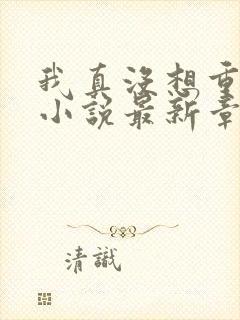 我真没想重
小说最新章
清識